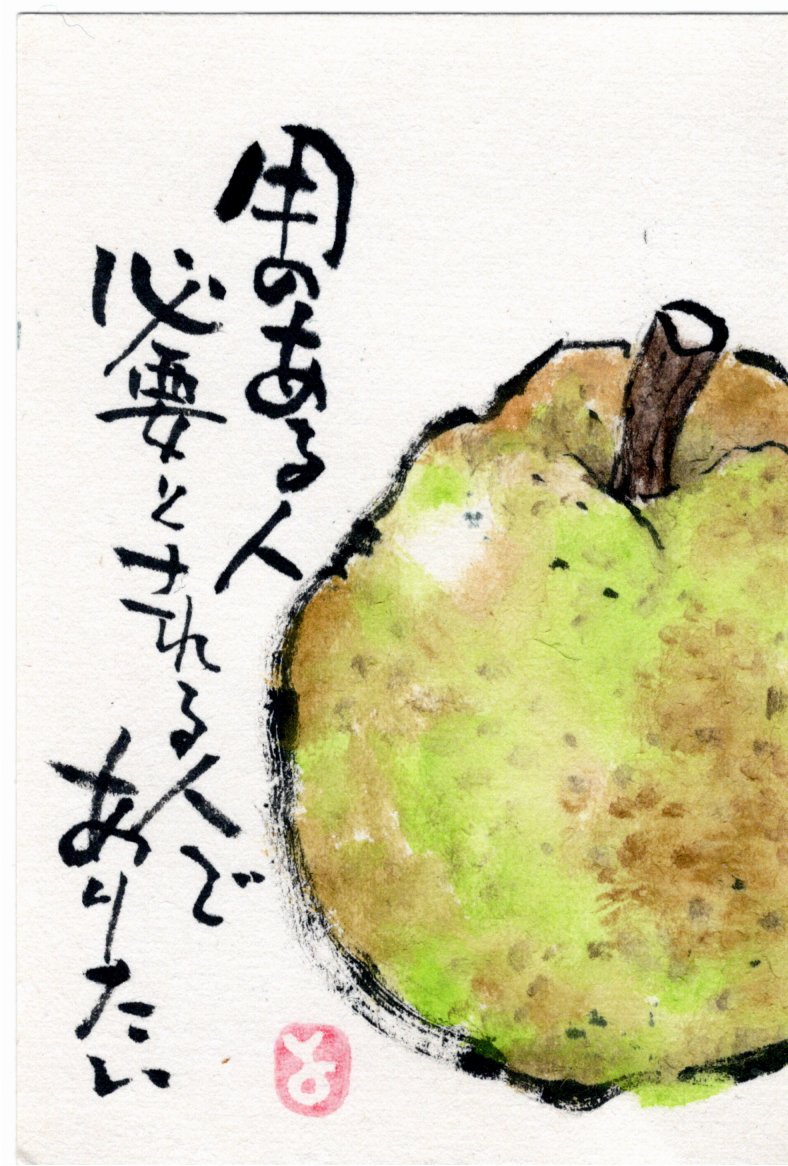 用のある人
必要とされる人で
ありたい